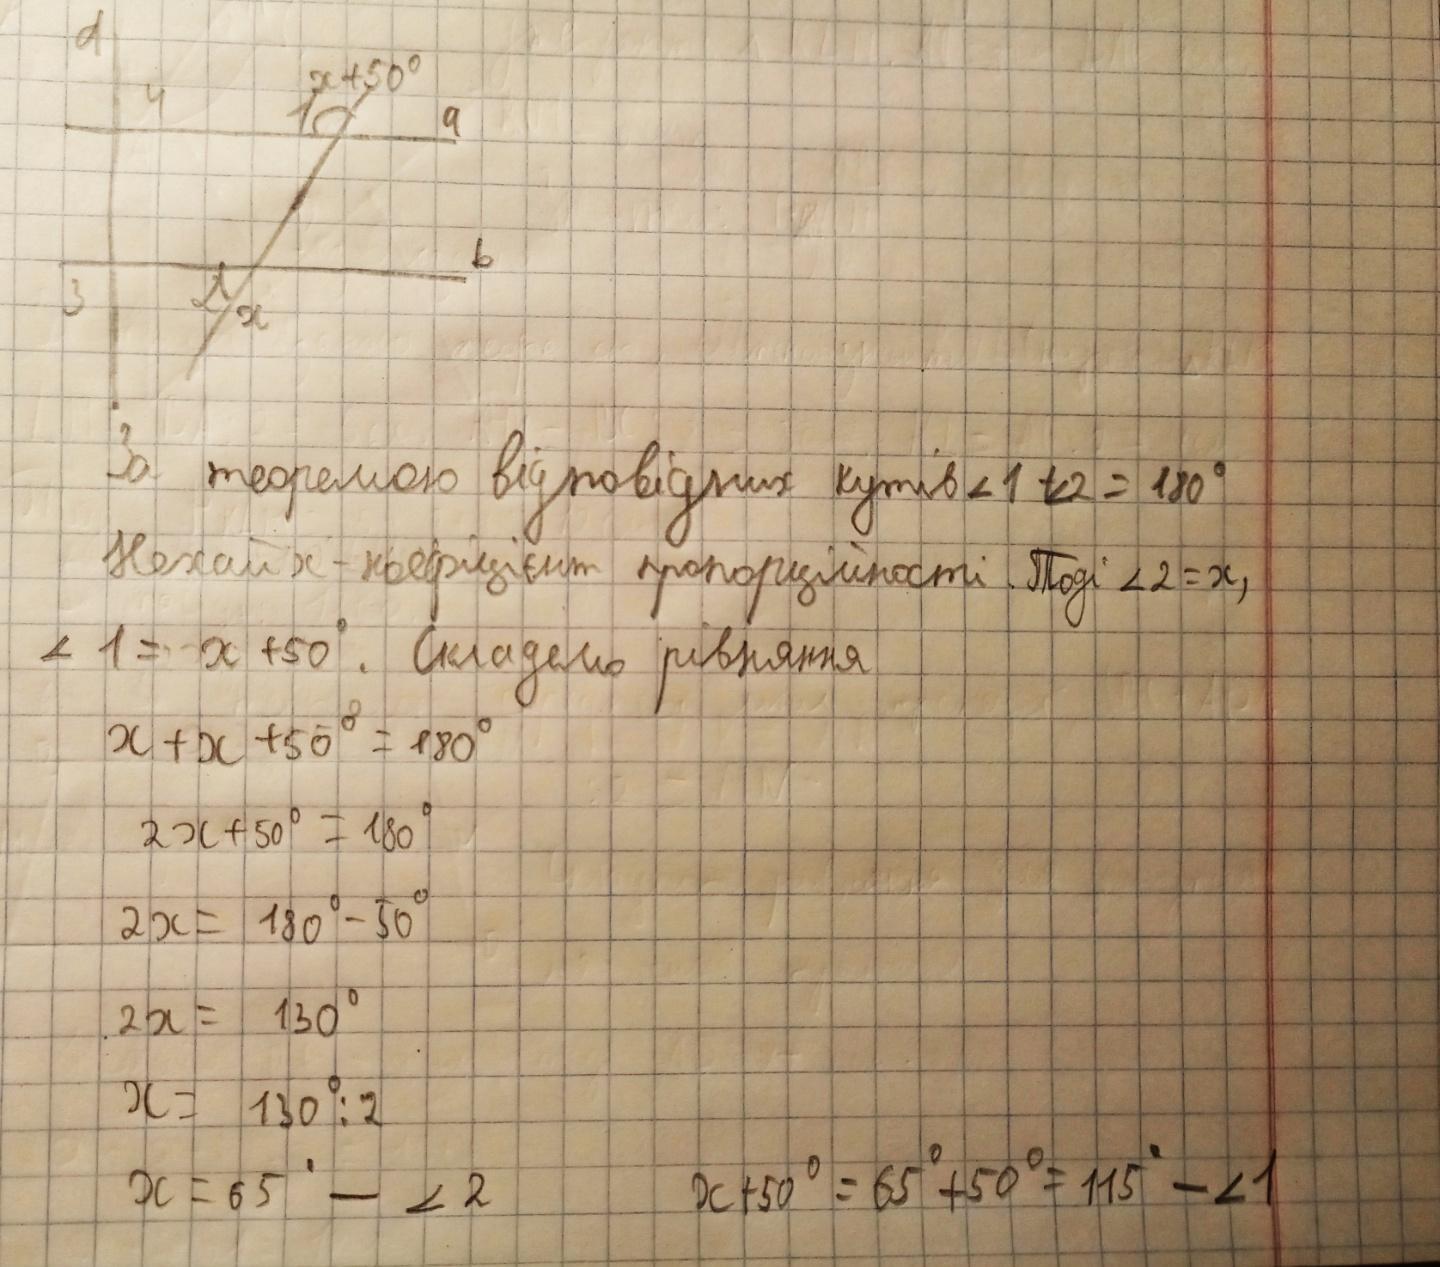 d
x+50°
4
1
a
b
3
2
x
За теоремою відповідних кутів ∠1 + ∠2 = 180°
Нехай x - коефіцієнт пропорційності. Тоді ∠2 = x,
∠1 = x + 50°. Складемо рівняння
x + x + 50° = 180°
2x + 50° = 180°
2x = 180° - 50°
2x = 130°
x = 130° : 2
x = 65° — ∠2 x + 50° = 65° + 50° = 115° — ∠1